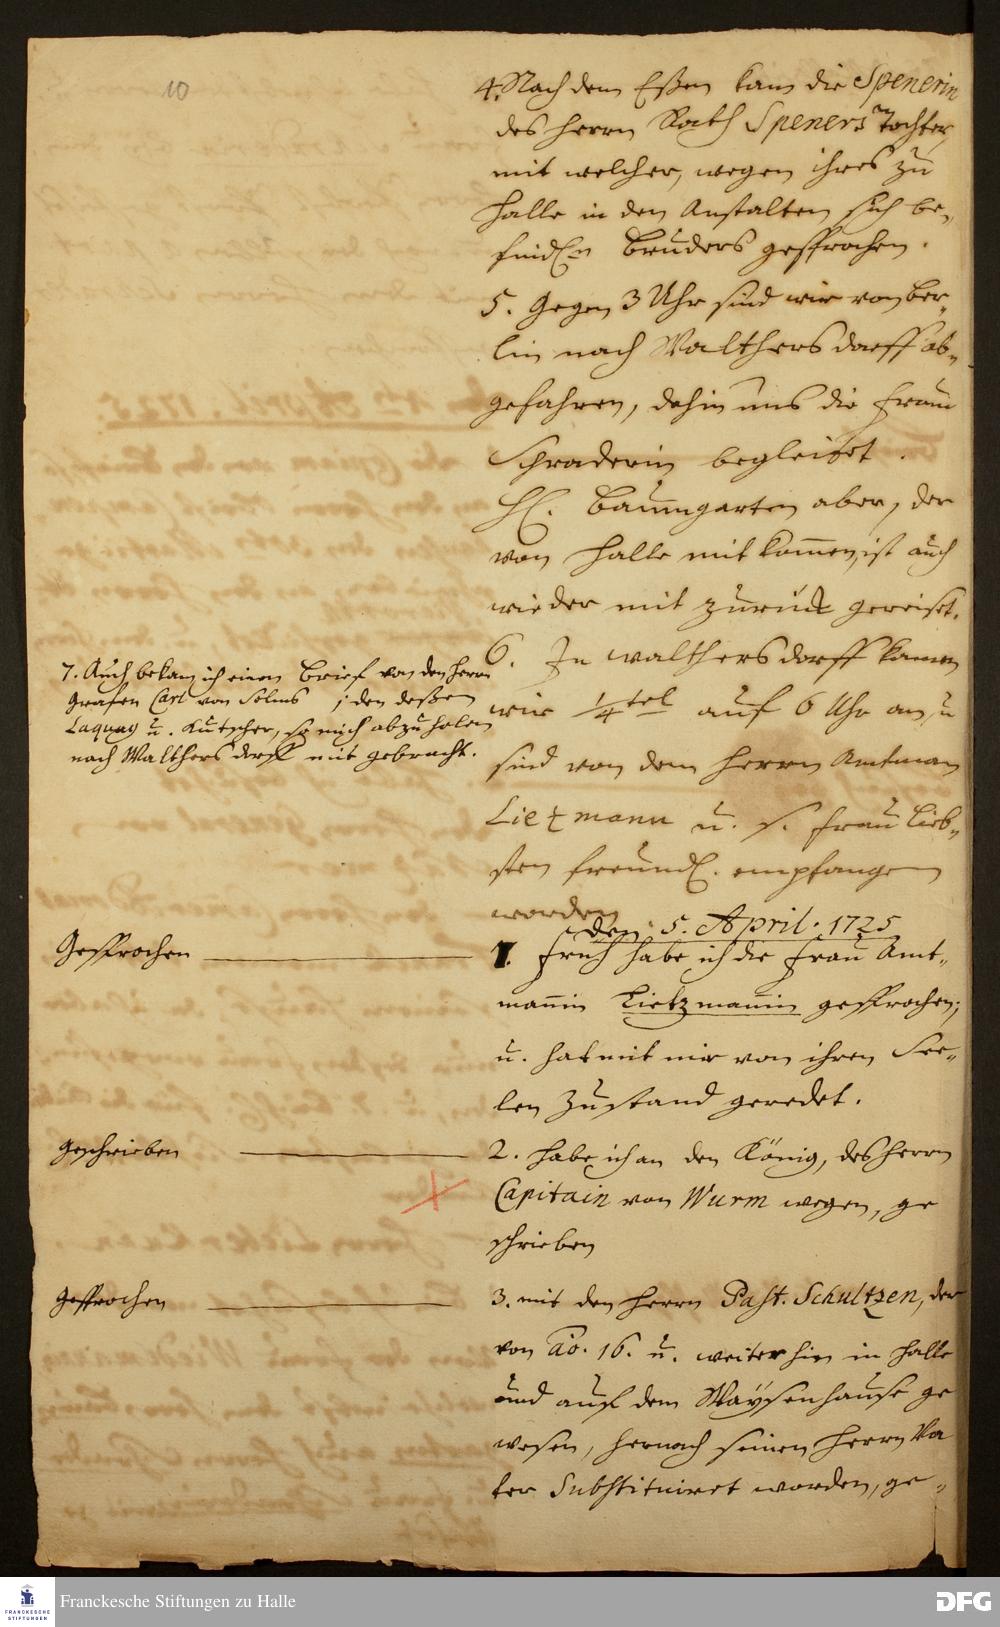 10
4. Nach dem Eßen kam die Spenerin
des Herrn Rath Speners Tochter,
mit welcher, wegen ihres zu
Halle in den Anstalten sich be-
finden Bruders gesprochen.
5. Gegen 3 Uhr sind wir von Ber-
lin nach Walthersdorff ab-
gefahren, dahin uns die Frau
Schraderin begleitet.
H. Baumgarten aber, der
von Halle mit kommen, ist auch
wieder mit zurück gereiset.
6. In Walthersdorff kamen
wir ¼tel auf 6 Uhr an, u
sind von dem Herrn Amtman
Lietzmann u. s. Frau Lieb-
sten freundl. empfangen
worden.
7. Auch bekam ich einen Brief von den Herrn
Grafen Carl von Solms ; den deßen
Laquay u. Kutscher, so mich abzuholen
nach Walthersdorff mit gebracht.
den 5. April. 1725
Gesprochen
1. Früh habe ich die Frau Amt-
mannin Lietzmannin gesprochen;
u. hat mit mir von ihren See-
len Zustand geredet.
Geschrieben
2. habe ich an den König, des Herrn
Capitain von Wurm wegen, ge
schrieben
Gesprochen
3. mit den Herrn Past. Schultzen, der
von Ao. 16. u. weiter hin in Halle
und auf dem Waysenhause ge
wesen, hernach seinen Herrn Va
ter Substituiret worden, ge-
FRANCKESCHE
STIFTUNGEN
Franckesche Stiftungen zu Halle
DFG